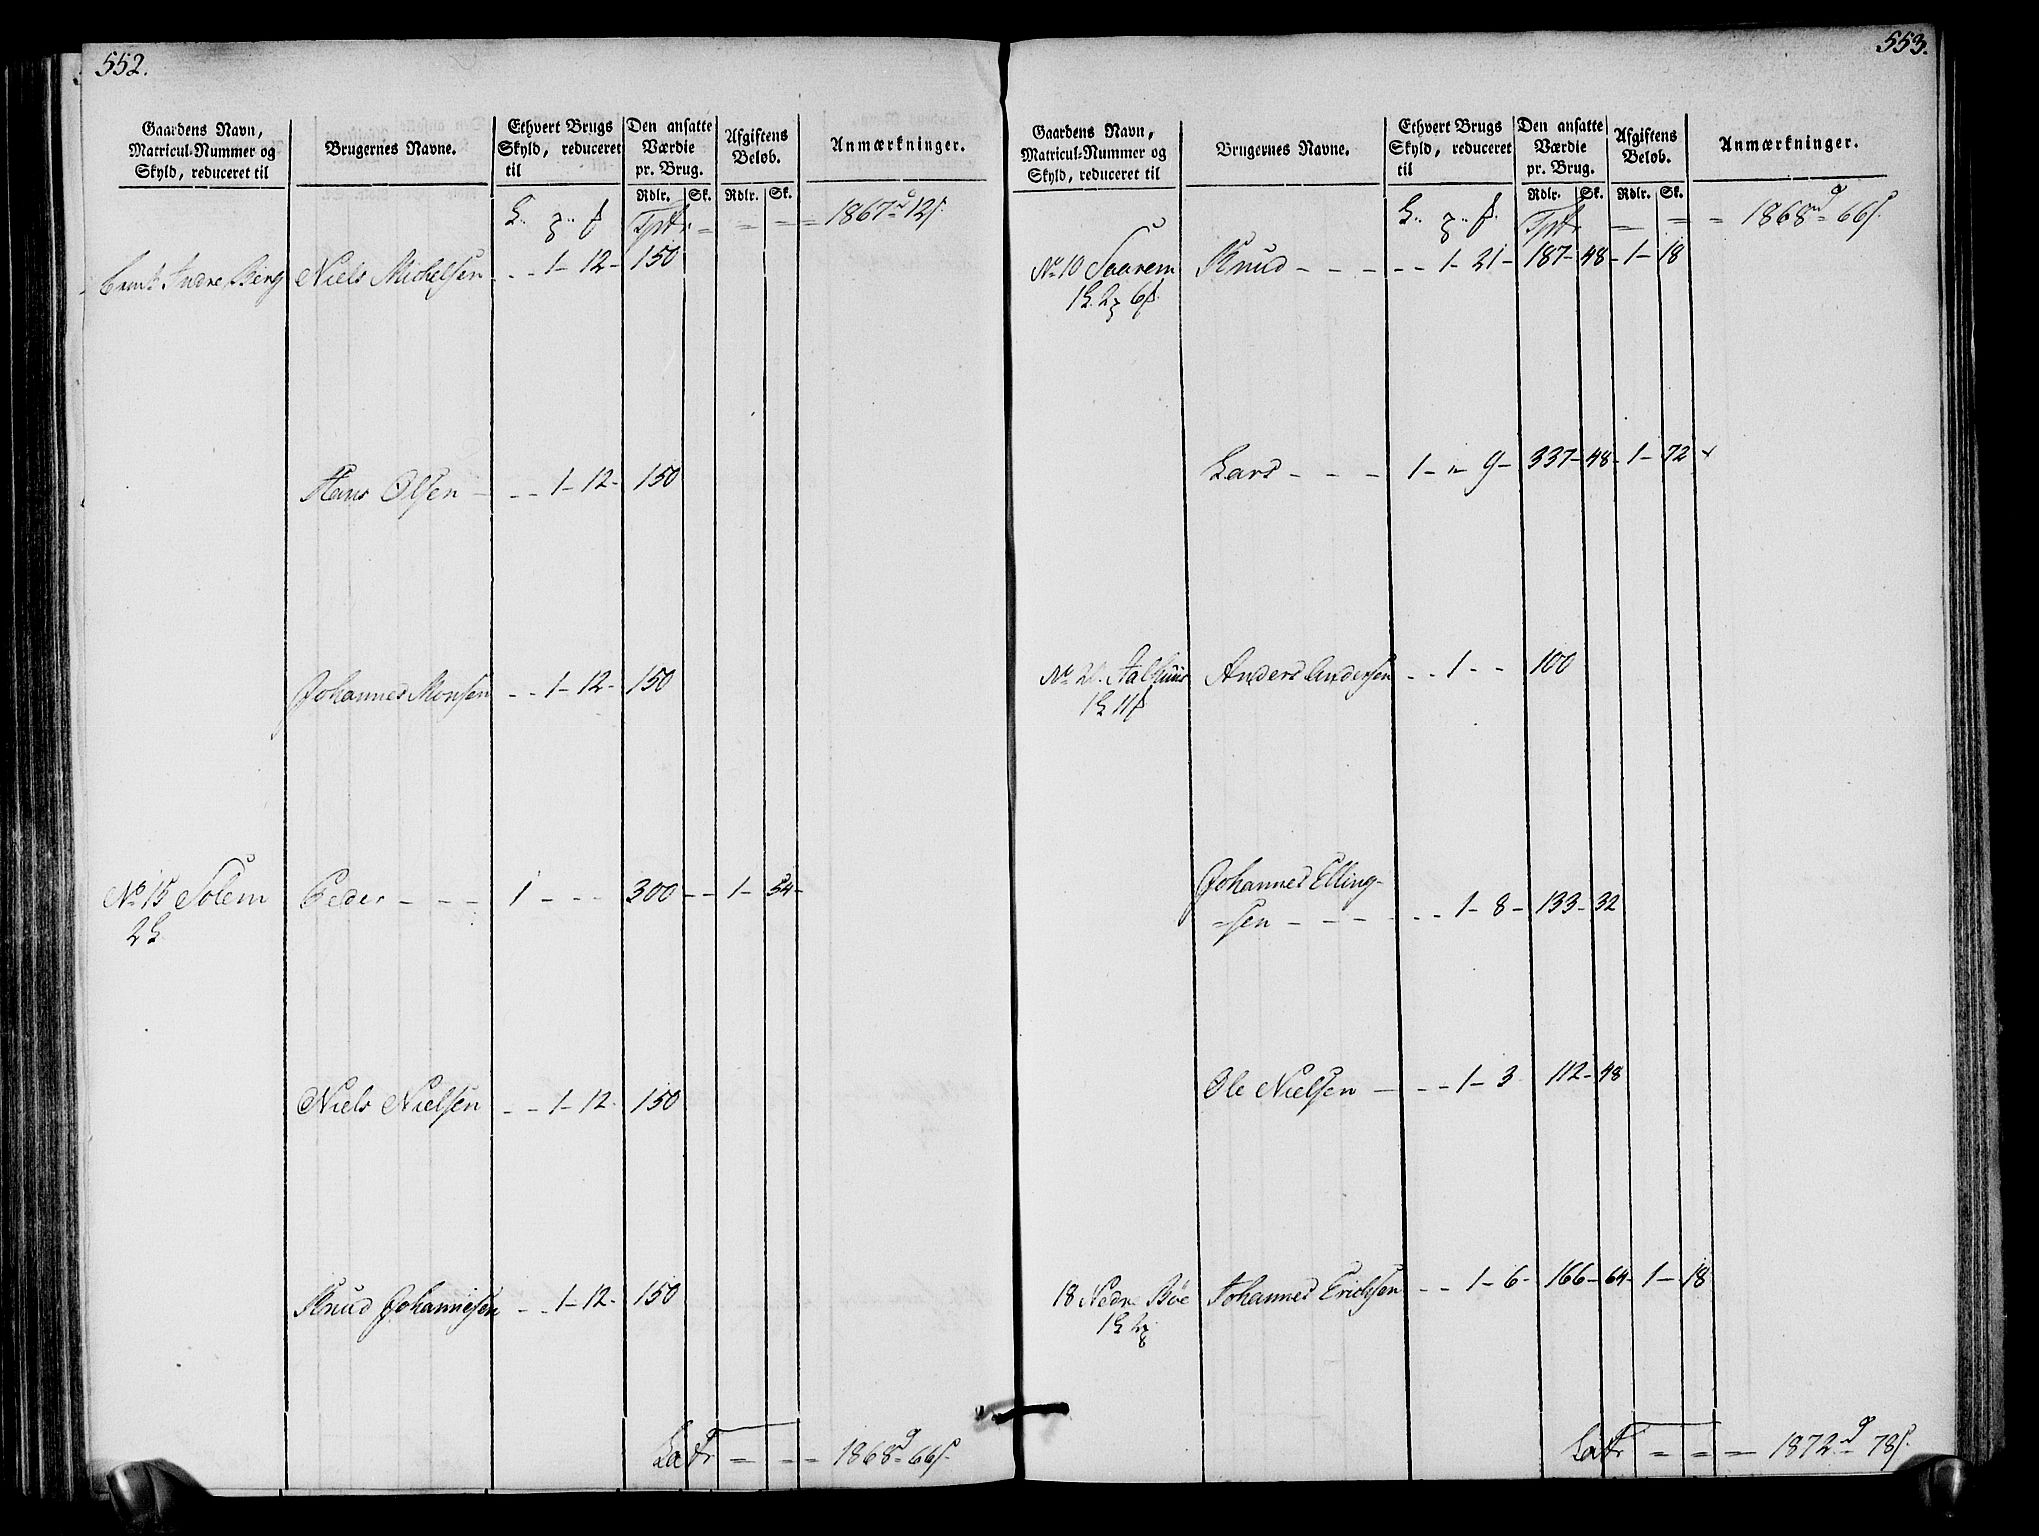 552.
Gaardens Navn, Matricul-Nummer og Skyld, reduceret til
Brugernes Navne.
Ethvert Brugs Skyld, reduceret til
Den ansatte Værdie pr. Brug.
Afgiftens Beløb.
Anmærkninger.
Rdlr. Sk. Rdlr. Sk.
Tptr = = = = 1867 12
Indre Berg Niels Michelsen - - 1 - 12 - 150
Hans Olsen - - - 1 - 12 - 150
Johannes Monsen - - 1 - 12 - 150
No 15 Solem Peder - - - 1 - - - 300 - - 1 - 54 -
2
Niels Nielsen - - 1 - 12 150
Knud Johannesen - - 1 - 12 - 150
Latr = = = 1868 66
553.
Gaardens Navn, Matricul-Nummer og Skyld, reduceret til
Brugernes Navne.
Ethvert Brugs Skyld, reduceret til
Den ansatte Værdie pr. Brug.
Afgiftens Beløb.
Anmærkninger.
Rdlr. Sk. Rdlr. Sk.
Tptr = = = 1868 66
No 10 Saarem Knud - - - - - 1 - 21 - 187 - 48 - 1 - 18
1 2 6
Lars - - - 1 - " 9 - 337 - 48 - 1 - 72
Aalhuus Anders Andersen - - 1 - - 100
1 11
Johannes Elling-
-sen - - - - - - 1 - 8 - 133 - 32
Ole Nielsen - - - 1 - 3 112 - 48
18 Nedre Bøe Johannes Erichsen - - 1 - 6 - 166 - 64 - 1 - 18
1 2
Latr = = = 1872 78